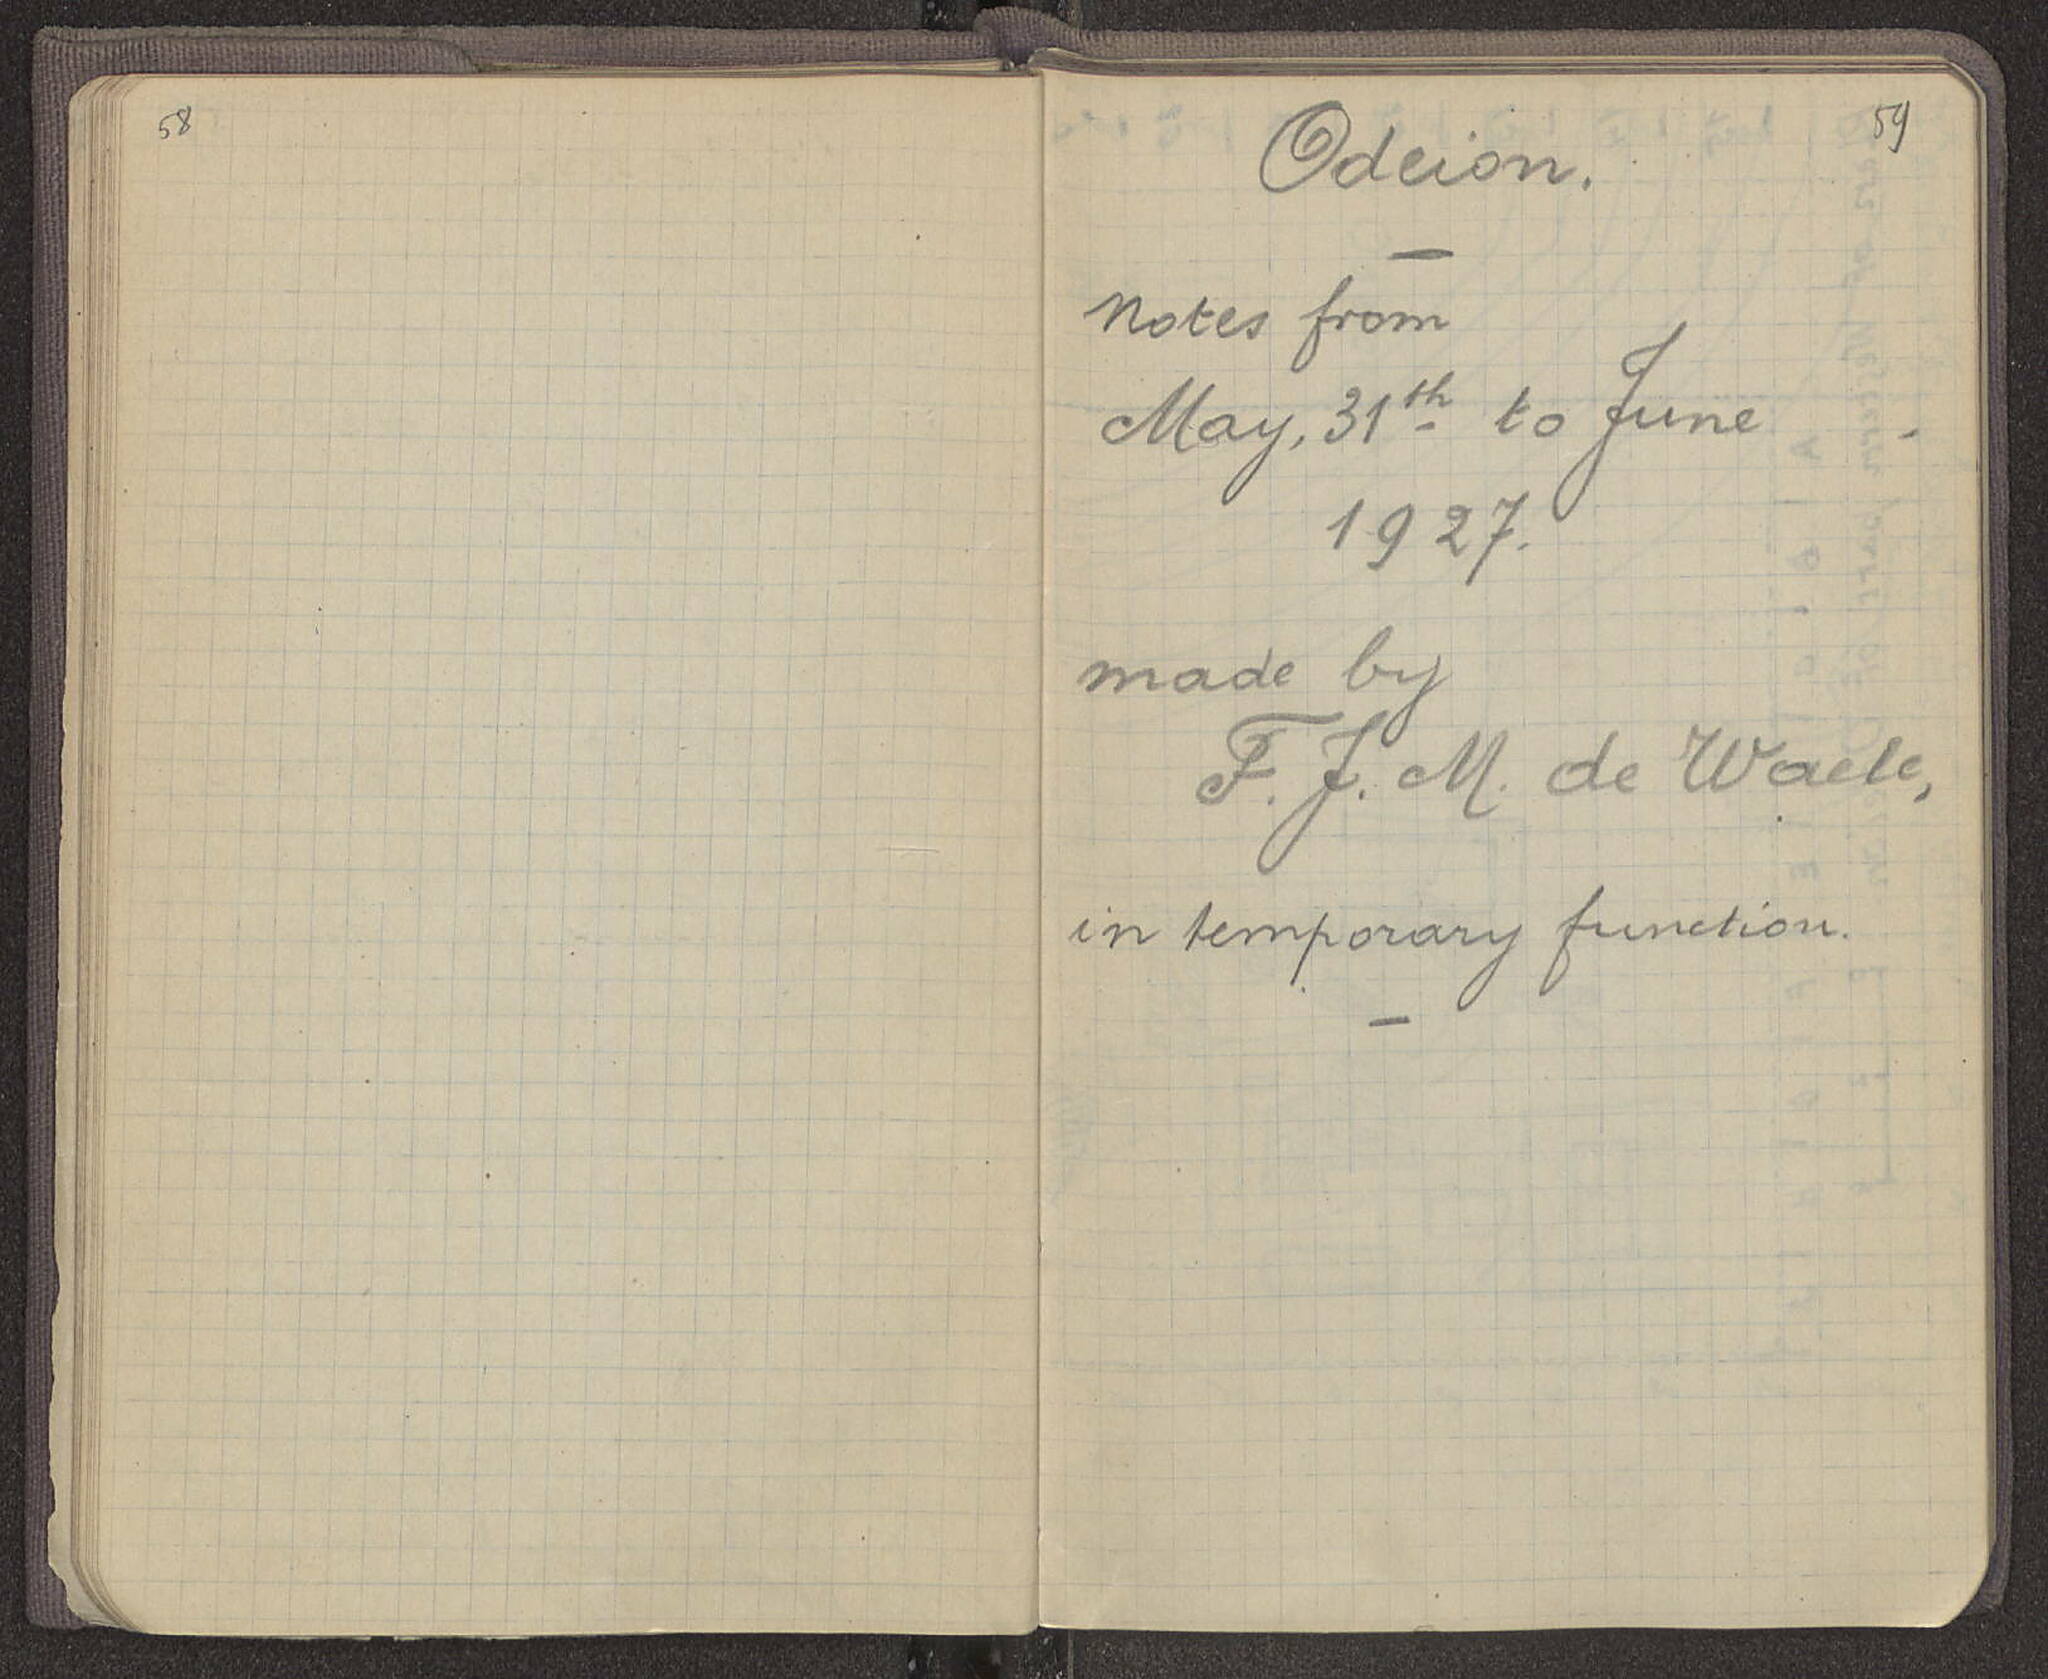 58
59
Odeion.
—
Notes from
May, 31th to June -
1927.
made by
F. J. M. de Waele,
in temporary function.
—